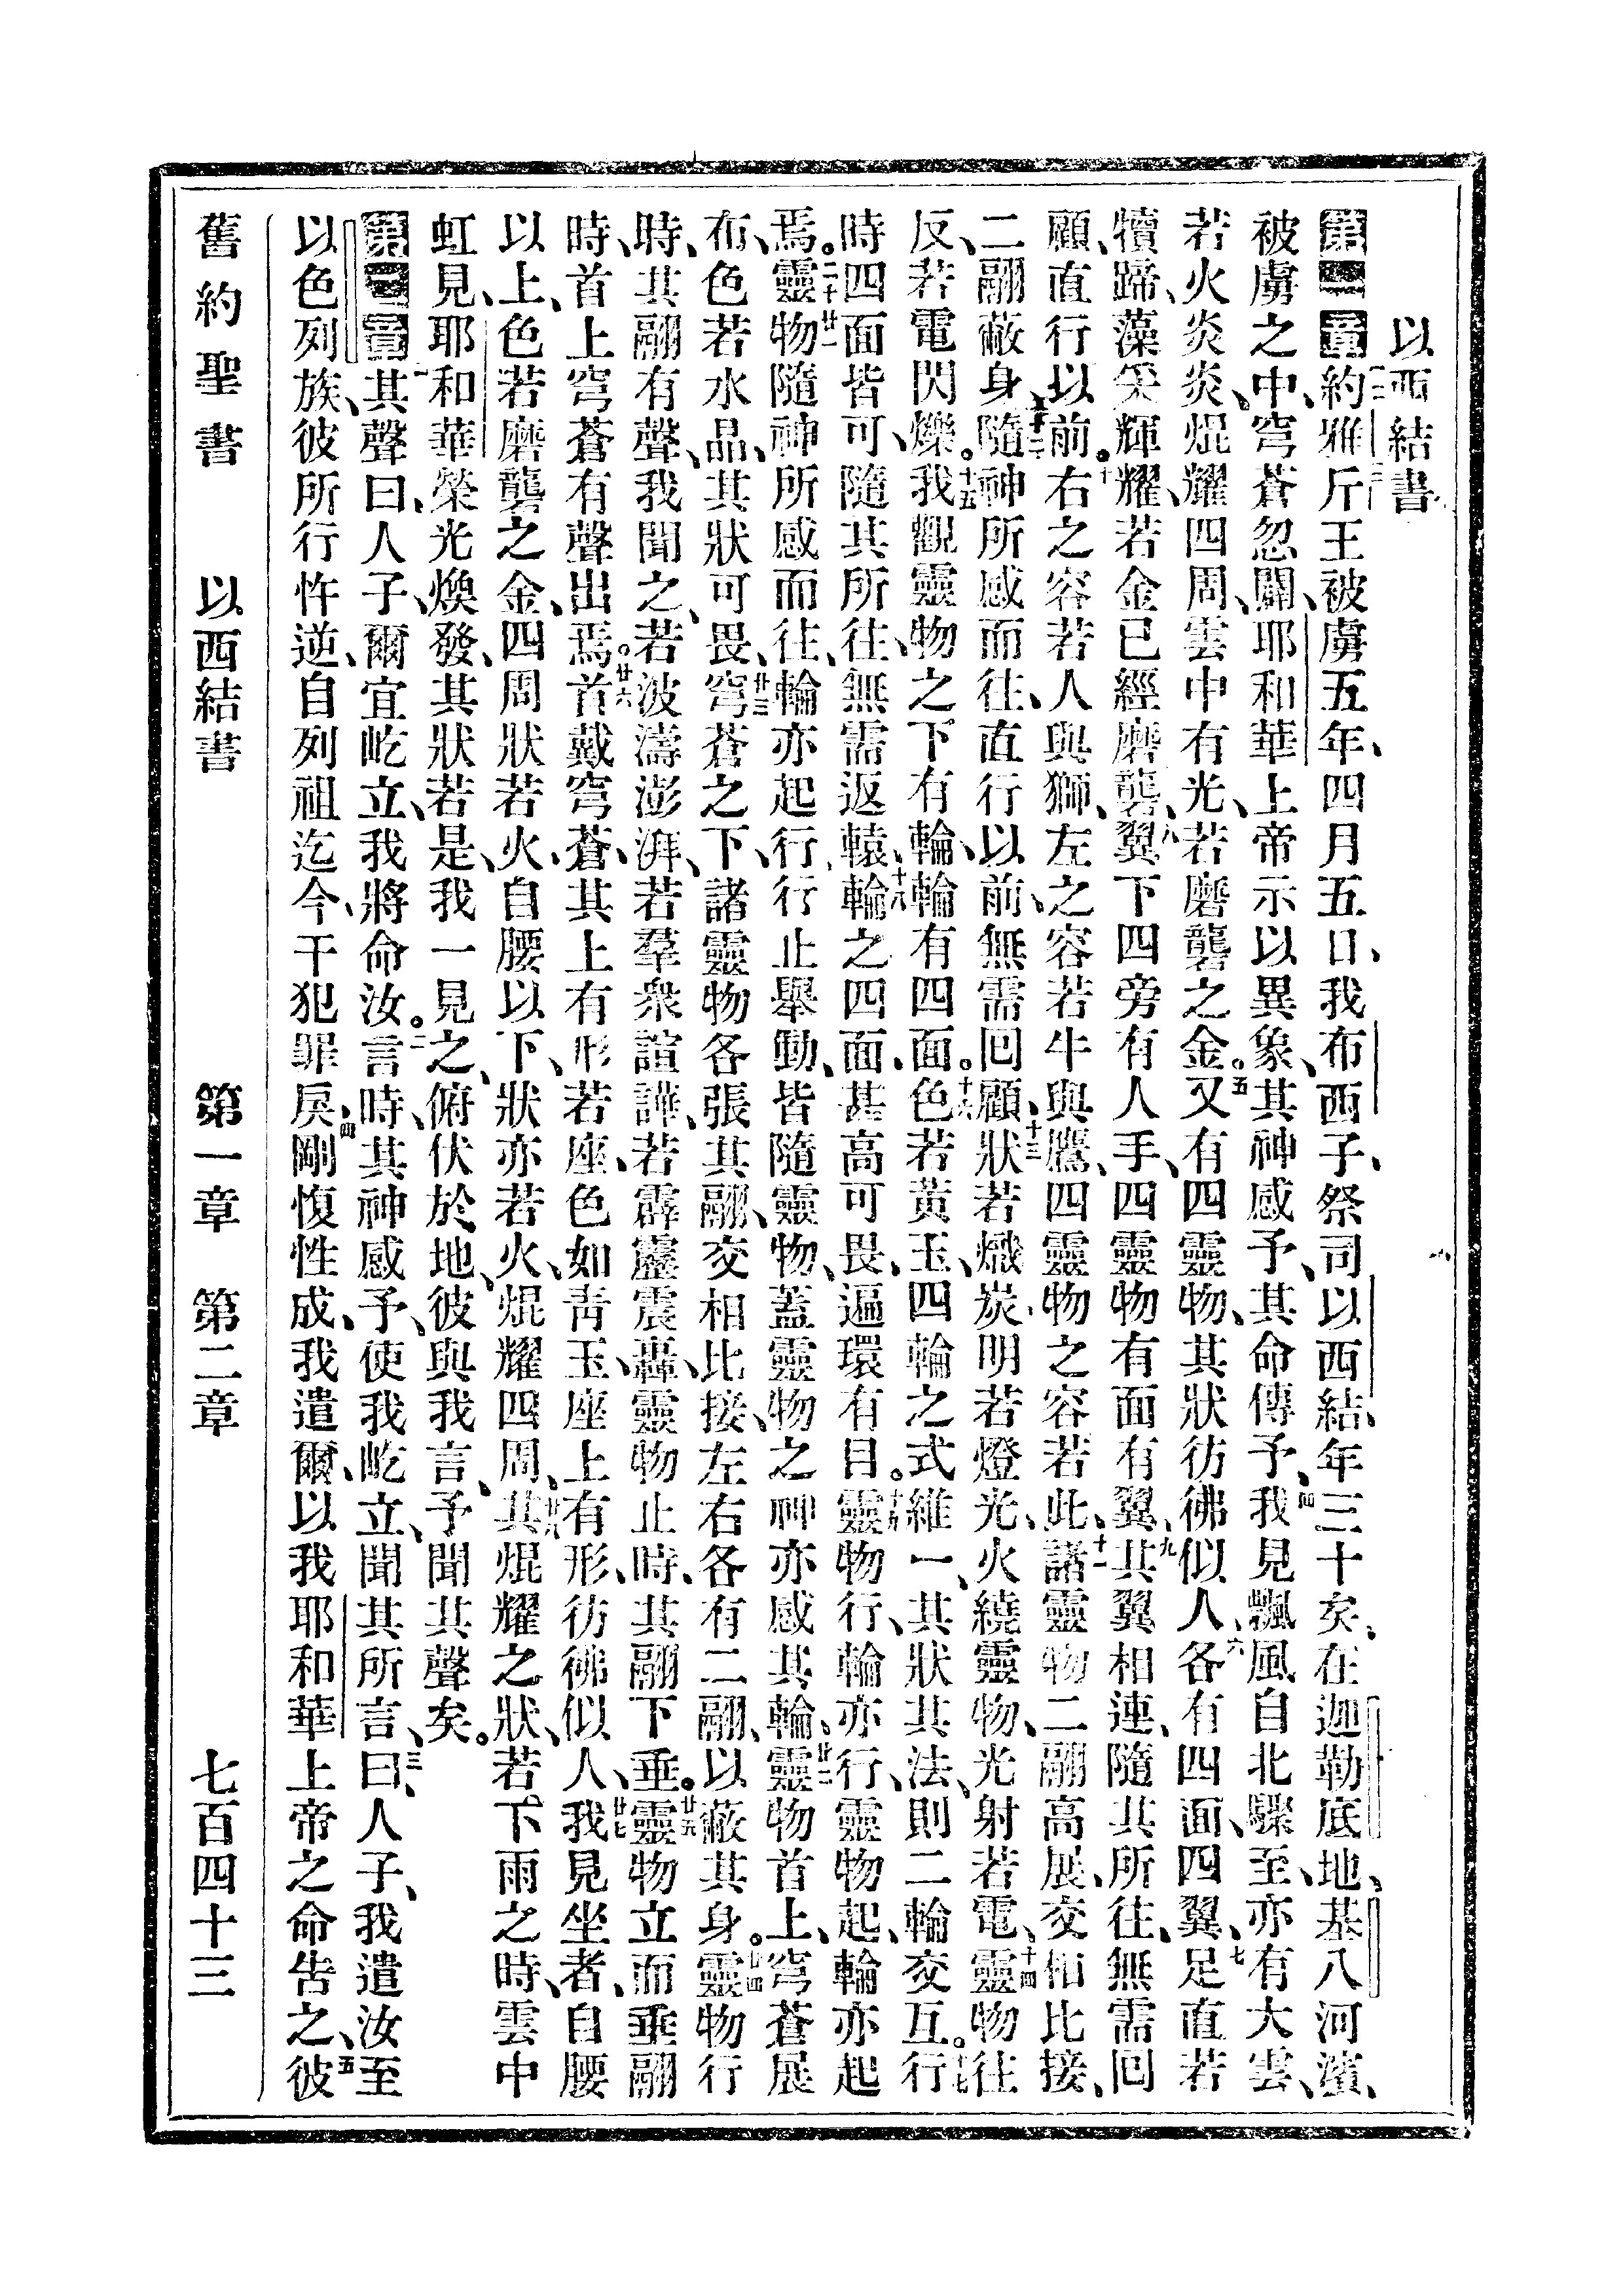 以西結書
第一章 約雅斤王被虜五年、四月五日、我布西子、祭司以西結、年三十矣、在迦勒底地、基八河濱、
被虜之中、穹蒼忽闢、耶和華上帝示以異象、其神感予、其命傳予、四我見飄風自北驟至、亦有大雲、
若火炎炎、焜耀四周、雲中有光、若磨礱之金。五又有四靈物、其狀彷彿似人、六各有四面、四翼、七足直若
犢蹄、藻采輝耀、若金已經磨礱、八翼下四旁有人手、四靈物有面有翼、九其翼相連、隨其所往、無需回
顧、直行以前。十右之容若人與獅、左之容若牛與鷹、四靈物之容若此、十一諸靈物二翮高展、交相比接、
二翮蔽身、十二隨神所感而往、直行以前、無需回顧、十三狀若熾炭、明若燈光、火繞靈物、光射若電、十四靈物往
反、若電閃爍。十五我觀靈物之下、有輪、輪有四面。十六色若黃玉、四輪之式維一、其狀其法、則二輪交互。十七行
時四面皆可、隨其所往、無需返轅、十八輪之四面、甚高可畏、遍環有目。十九靈物行、輪亦行、靈物起、輪亦起
焉。二十廿一靈物隨神所感而往、輪亦起行、行止舉動、皆隨靈物、蓋靈物之神亦感其輪、廿二靈物首上、穹蒼展
布、色若水晶、其狀可畏、廿三穹蒼之下、諸靈物各張其翮、交相比接、左右各有二翮、以蔽其身。廿四靈物行
時、其翮有聲、我聞之、若波濤澎湃、若羣衆諠譁、若霹靂震轟、靈物止時、其翮下垂。廿五靈物立而垂翮
時、首上穹蒼有聲出焉。廿六首戴穹蒼、其上有形若座、色如靑玉、座上有形、彷彿似人、廿七我見坐者、自腰
以上、色若磨礱之金、四周狀若火、自腰以下、狀亦若火、焜耀四周、廿八其焜耀之狀、若下雨之時、雲中
虹見、耶和華榮光煥發、其狀若是、我一見之、俯伏於地、彼與我言、予聞其聲矣。
第二章 一其聲曰、人子、爾宜屹立、我將命汝。二言時、其神感予、使我屹立、聞其所言、三曰、人子、我遣汝至
以色列族、彼所行忤逆、自列祖迄今、干犯罪戾、四剛愎性成、我遣爾、以我耶和華上帝之命告之、五彼
舊約聖書 以西結書 第一章 第二章 七百四十三